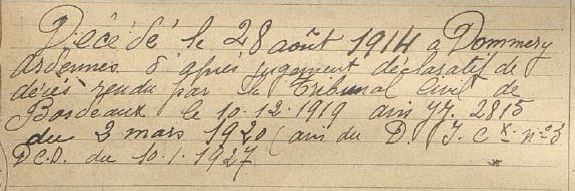 Décédé le 28 août 1914 à Dommery
Ardennes d'après jugement déclaratif de
décès rendu par le Tribunal Civil de
Bordeaux le 10.12.1919 avis 2815
du 2 mars 1920 (avis du D. n°3
D.C.D. du 10.1.1927